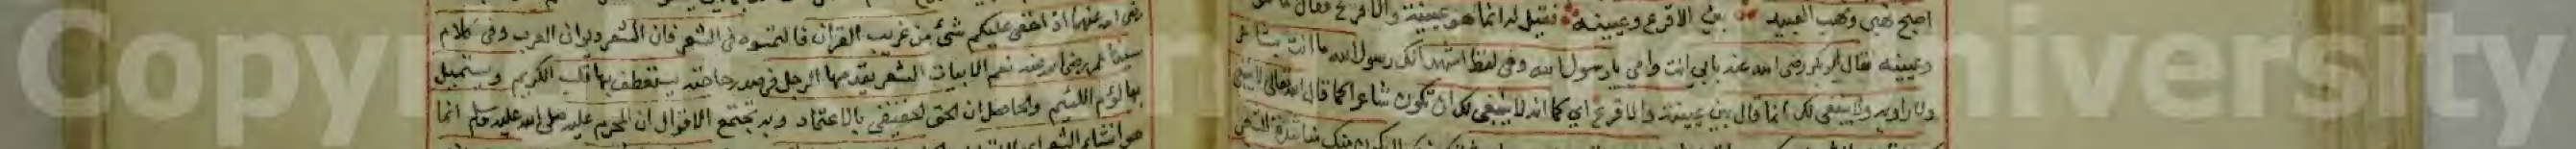 اصبح نهبى ونهب العبيد بين الاقرع وعيينة فقيل له انما هو عيينة والاقرع فقال
وعيينة فقال ابو بكر رضى الله عنه بابى انت وامى يا رسول الله وفى لفظ اشهد انك رسول الله ما انت بشاعر
ولا راويه ولا ينبغى لك انما قال بين عيينة والاقرع اى كما انه لا ينبغى لك ان تكون شاعرا كما قال الله تعالى لا ينبغى
رضى الله عنهما اذا خفى عليكم شئ من غريب القرآن فالتمسوه فى الشعر فان الشعر ديوان العرب وفى كلام
سيدنا عمر رضى الله عنه نعم الابيات الشعر يقدمها الرجل فى صدر حاجته يستعطف بها قلب الكريم ويستميل
بها لؤم اللئيم والحاصل ان الحق الحقيقى بالاعتماد وبه تجتمع الاقوال ان المحرم عليه صلى الله عليه وسلم انما
هو انشاء الشعر
Copyr University